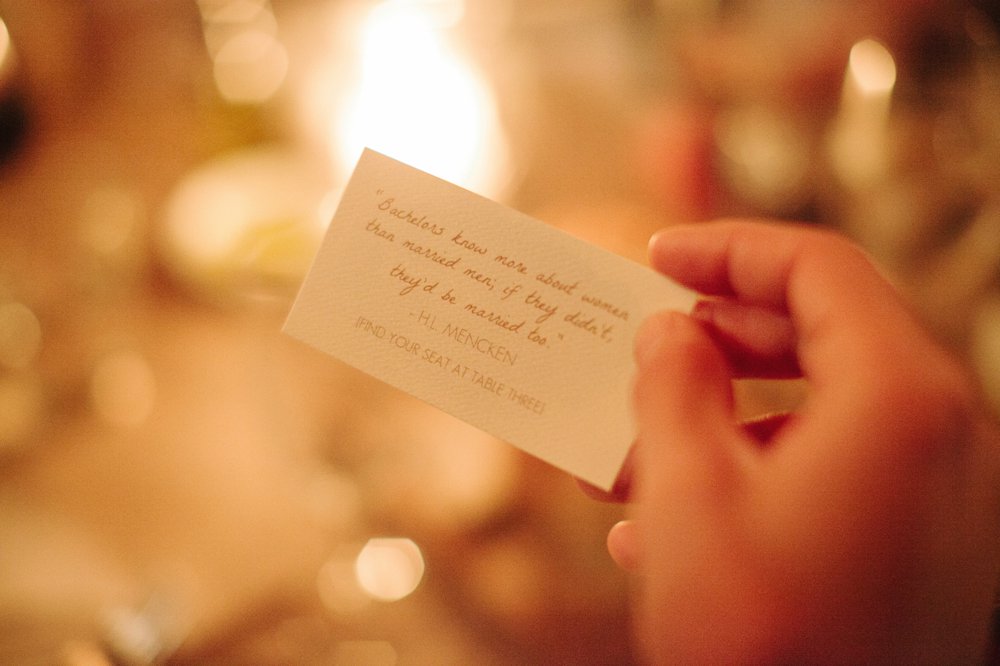 "Bachelors know more about women
than married men; if they didn't,
they'd be married too."
- H.L. MENCKEN
(FIND YOUR SEAT AT TABLE THREE)